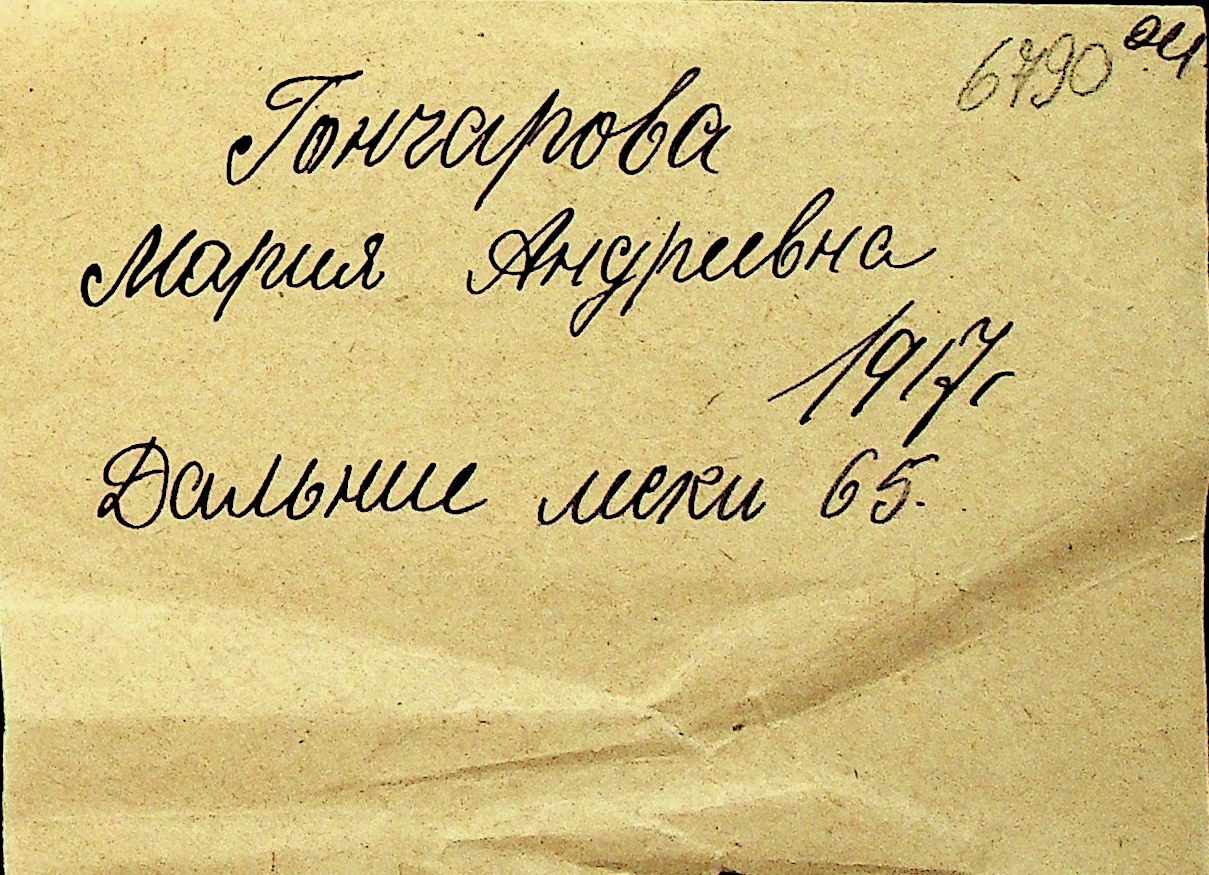 6790
Гончарова
Мария Андреевна
1917г
Дальние пески 65.